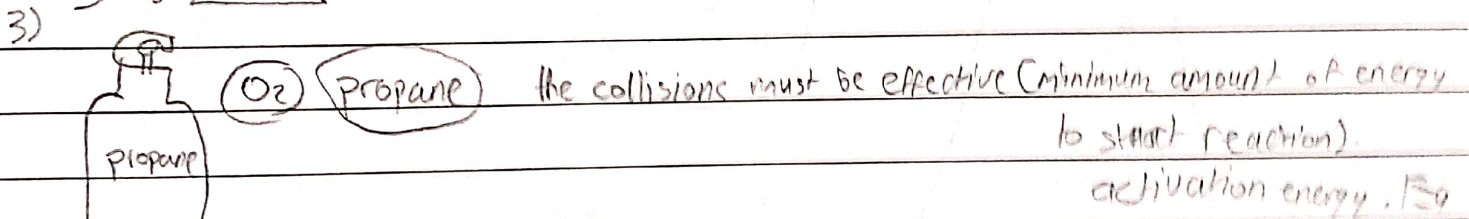 3)
O2 propane the collisions must be effective (minimum amount of energy
to start reaction)
propane
activation energy. Ea